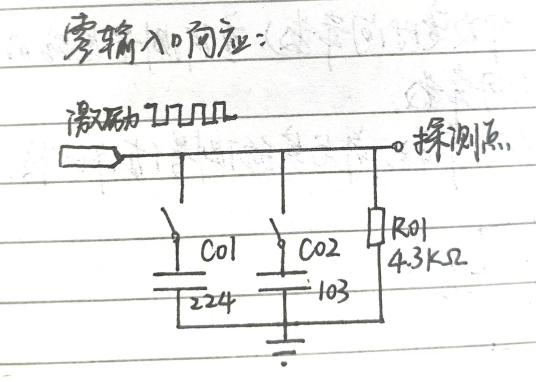 零输入响应:
激励
探测点
C01
224
C02
103
R01
4.3KΩ